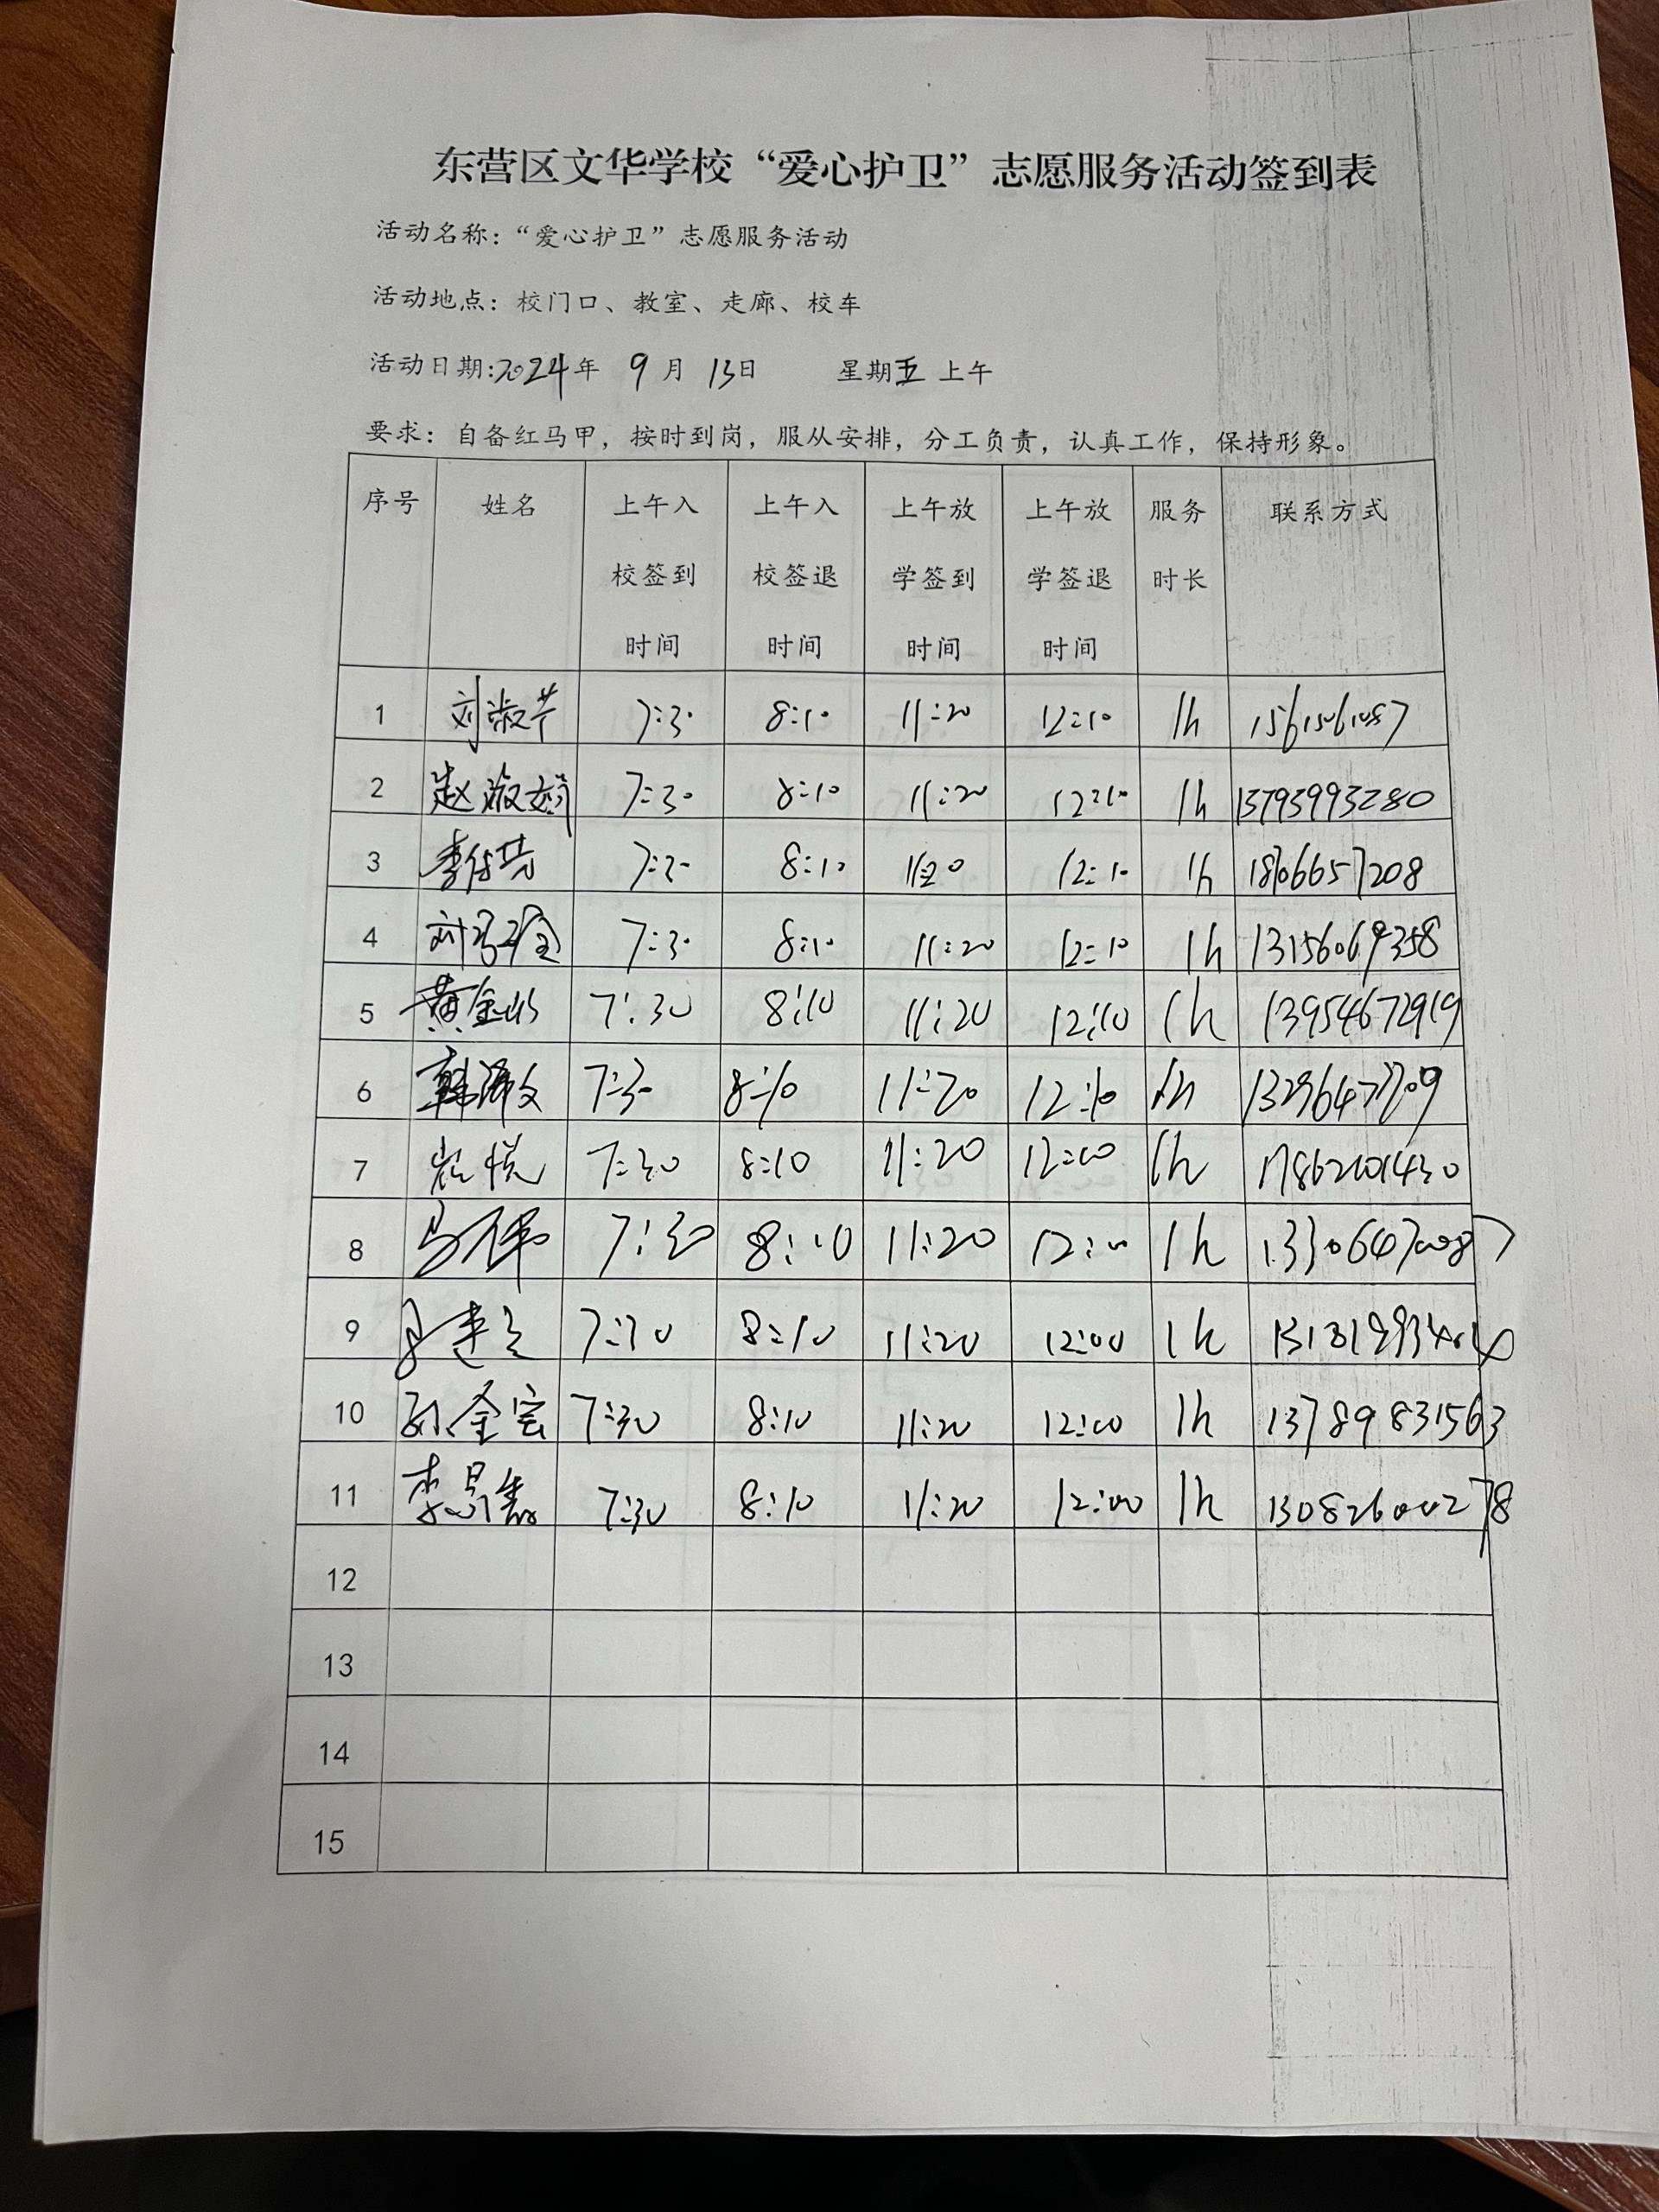 东营区文华学校“爱心护卫”志愿服务活动签到表
活动名称：“爱心护卫”志愿服务活动
活动地点：校门口、教室、走廊、校车
活动日期:2024年 9月 13日 星期五 上午
要求：自备红马甲，按时到岗，服从安排，分工负责，认真工作，保持形象。
序号 姓名 上午入校签到时间 上午入校签退时间 上午放学签到时间 上午放学签退时间 服务时长 联系方式
1 刘淑芹 7:30 8:10 11:20 12:10 1h 15615061087
2 赵淑娟 7:30 8:10 11:20 12:10 1h 13793993280
3 7:30 8:10 11:20 12:10 1h 18706657208
4 7:30 8:10 11:20 12:10 1h 13156069358
5 黄金山 7:30 8:10 11:20 12:10 1h 13954672919
6 7:30 8:10 11:20 12:10 1h
7 7:30 8:10 11:20 12:00 1h
8 7:30 8:10 11:20 12:00 1h
9 7:30 8:10 11:20 12:00 1h
10 7:30 8:10 11:20 12:00 1h 13789831563
11 7:30 8:10 11:20 12:00 1h 13082600278
12
13
14
15